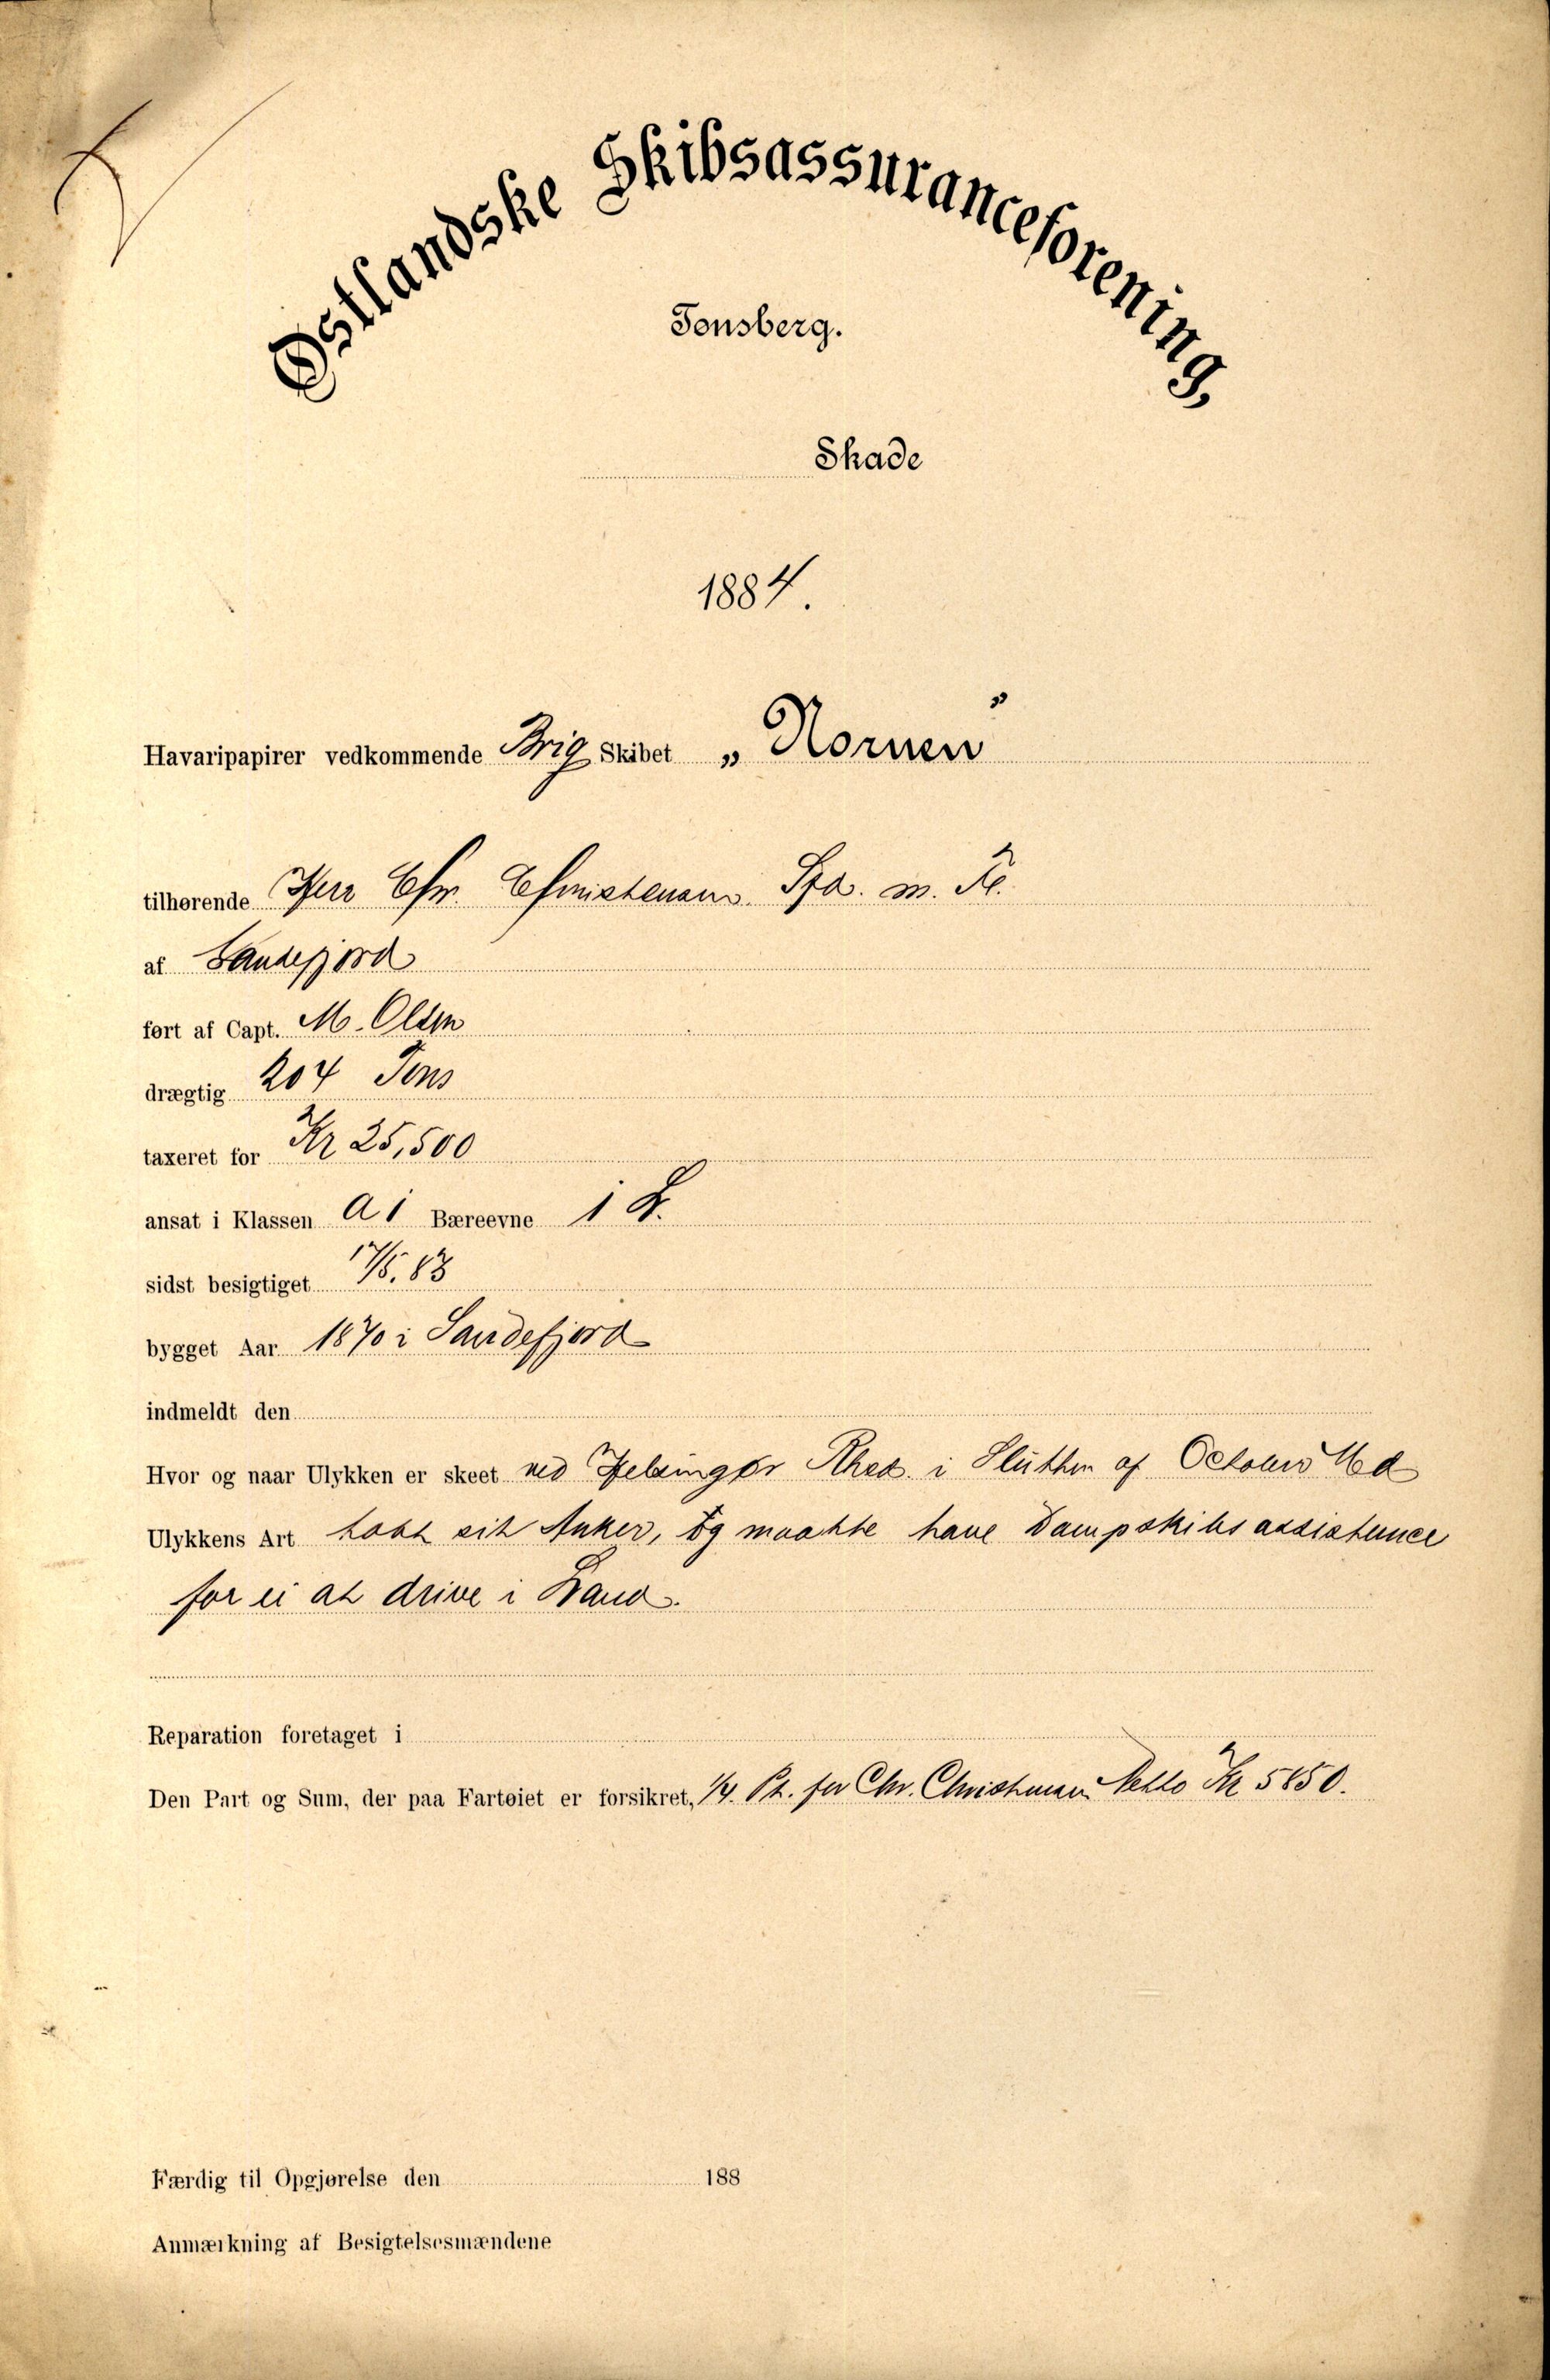 Østlandske Skibsassuranceforening,
Tønsberg.
Skade
1884.
Havaripapirer vedkommende Brig Skibet „Nornen”
tilhørende Herr Chr. Christensen m. Fl.
af Sandefjord
ført af Capt. M. Olsen
drægtig 204 Tons
taxeret for Kr 25,500
ansat i Klassen A 1 Bæreevne 1
sidst besigtiget 17/5. 83
bygget Aar 1870 i Sandefjord
indmeldt den
Hvor og naar Ulykken er skeet ved Helsingør Rhed i Slutten af October Md
Ulykkens Art tabt sit Anker, og maatte have Dampskibsassistence
for ei at drive i Land.
Reparation foretaget i
Den Part og Sum, der paa Fartøiet er forsikret, 1/4. Pt. for Chr. Christensen Netto Kr 5850.
Færdig til Opgjørelse den 188
Anmærkning af Besigtelsesmændene